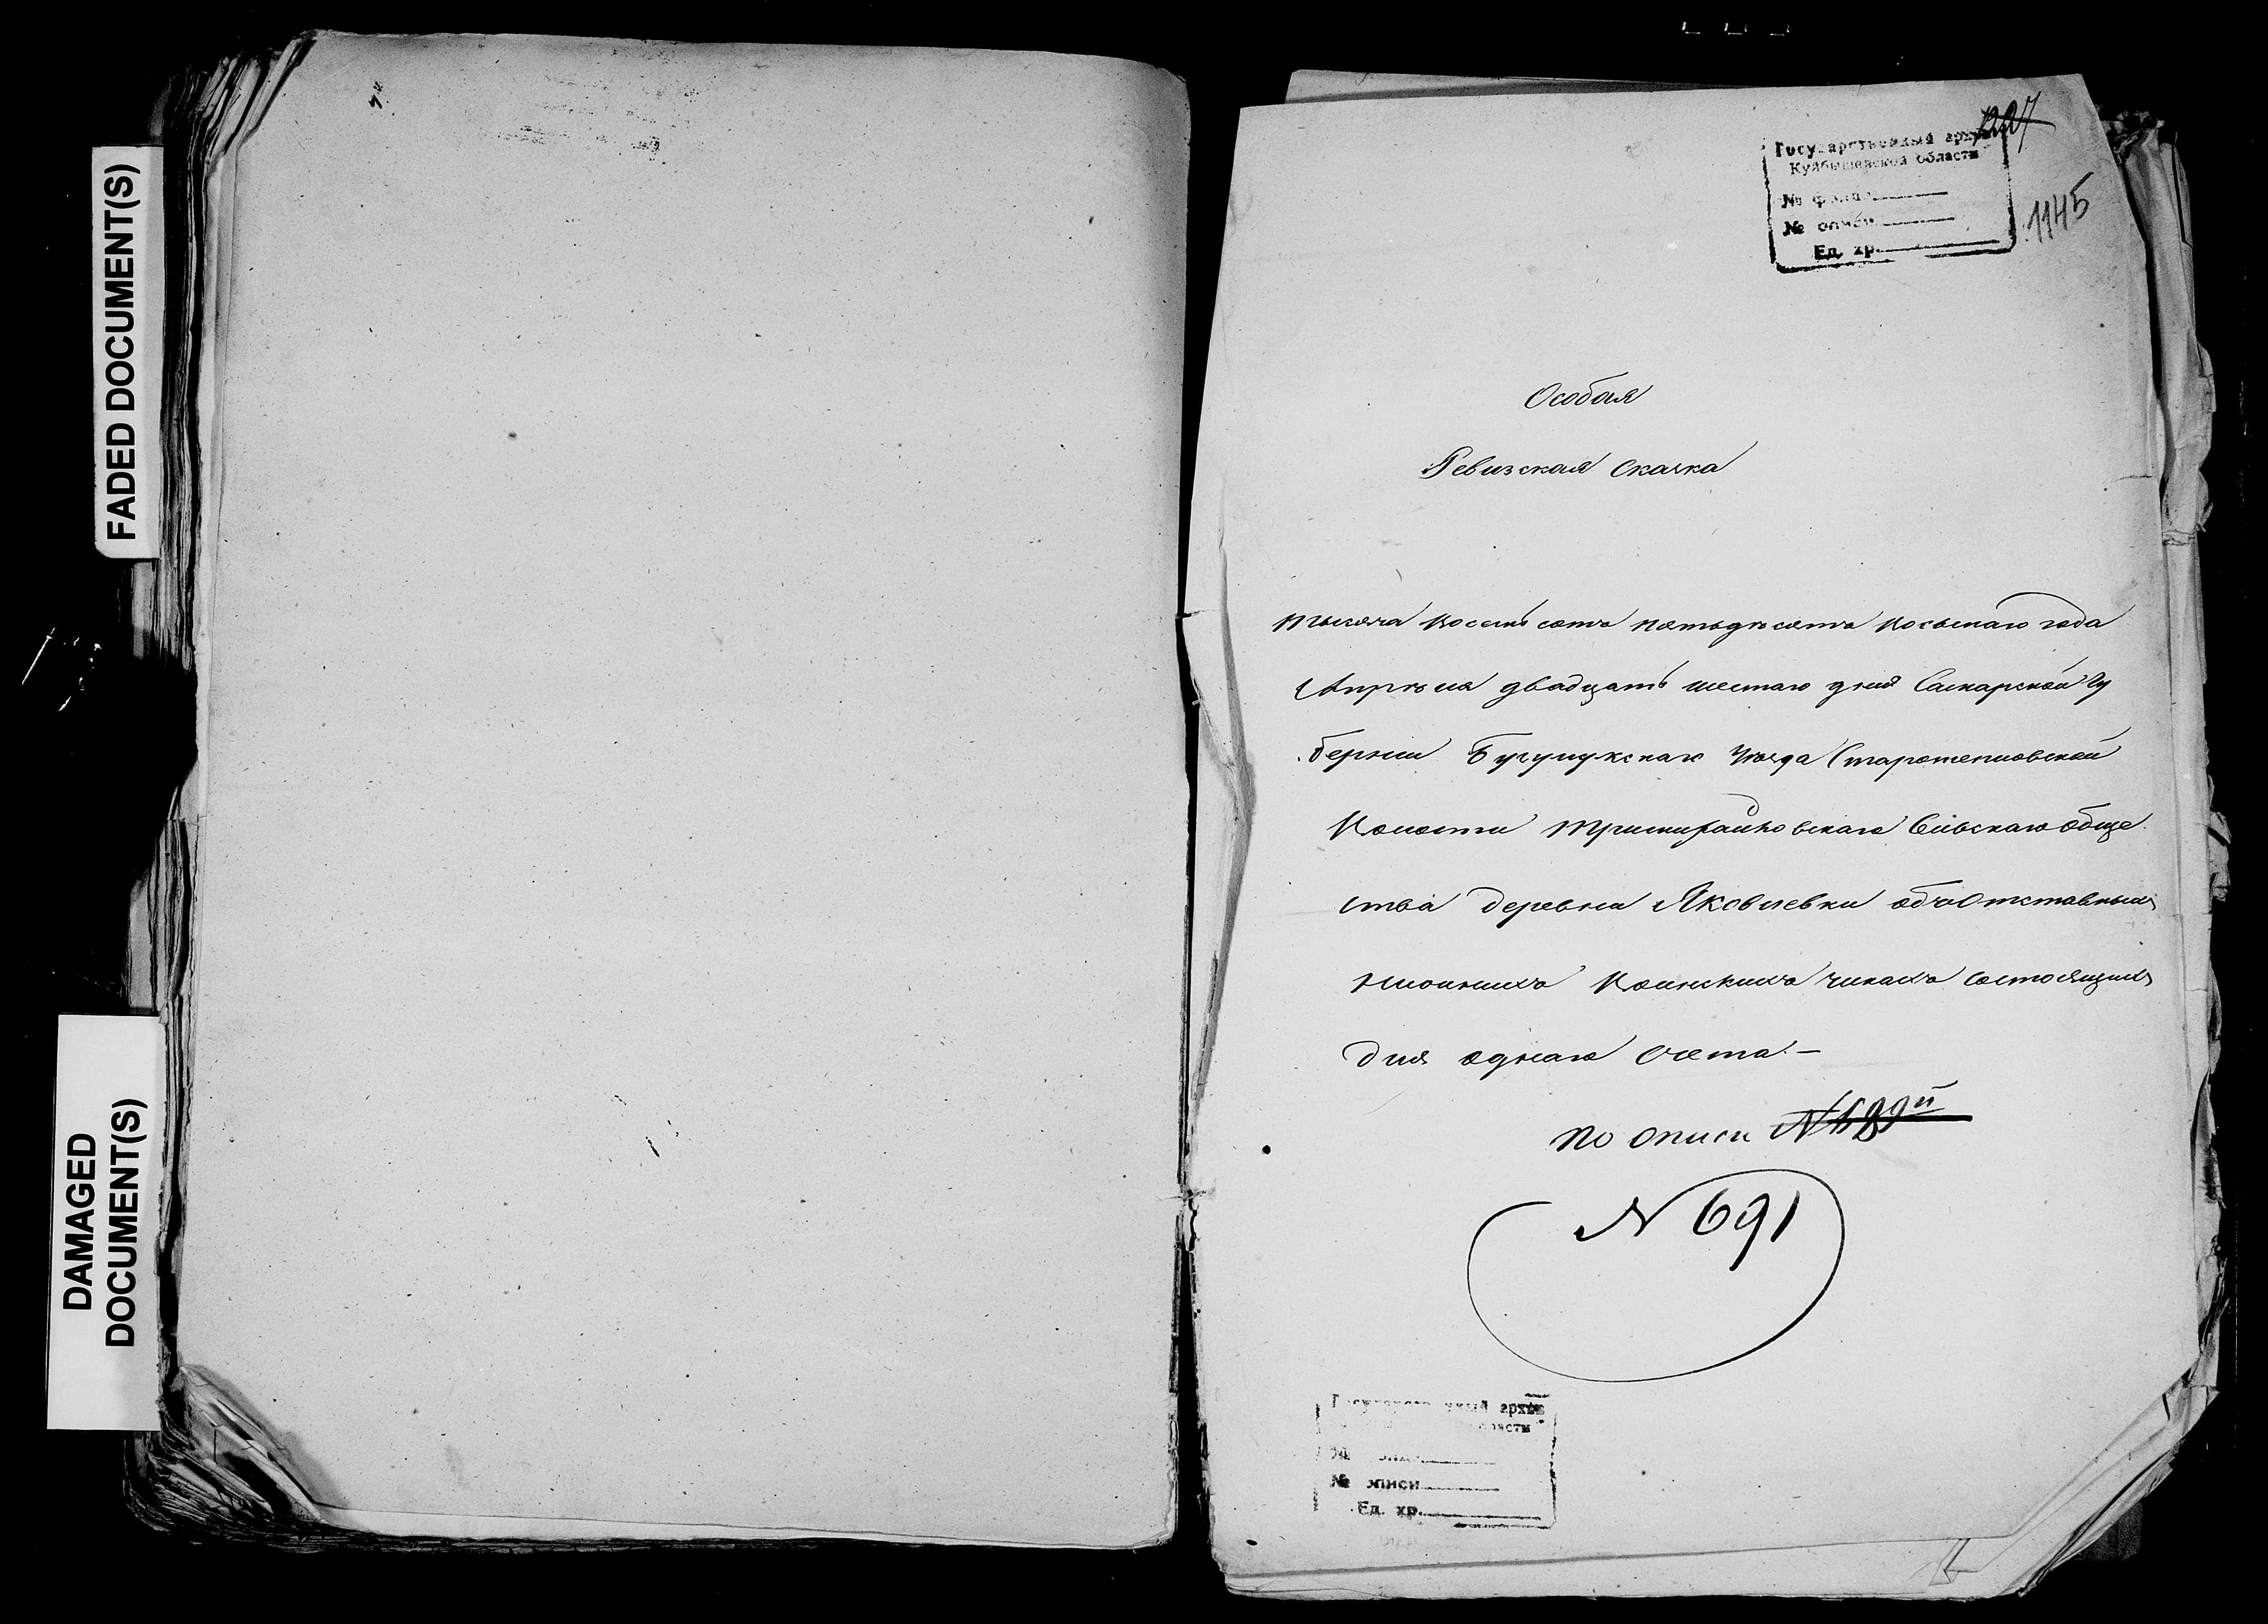 FADED DOCUMENT(S)
DAMAGED
DOCUMENT(S)
Государственный архив
Куйбышевской области
№ фонда
№ описи
Ед. хр.
1145
Особая
Ревизская скаска
тысяча восемь сотъ пятьдесятъ восьмаго года
Апреля двадцать шестаго дня Самарской Гу
берніи Уѣзда
Волости Сельскаго обще
ства деревни Яковлевки объ Отставныхъ
нижнихъ Воинскихъ чинахъ состоящихъ
для однаго счета.—
по описи
N 691
архив
области
№
№ описи
Ед. хр.